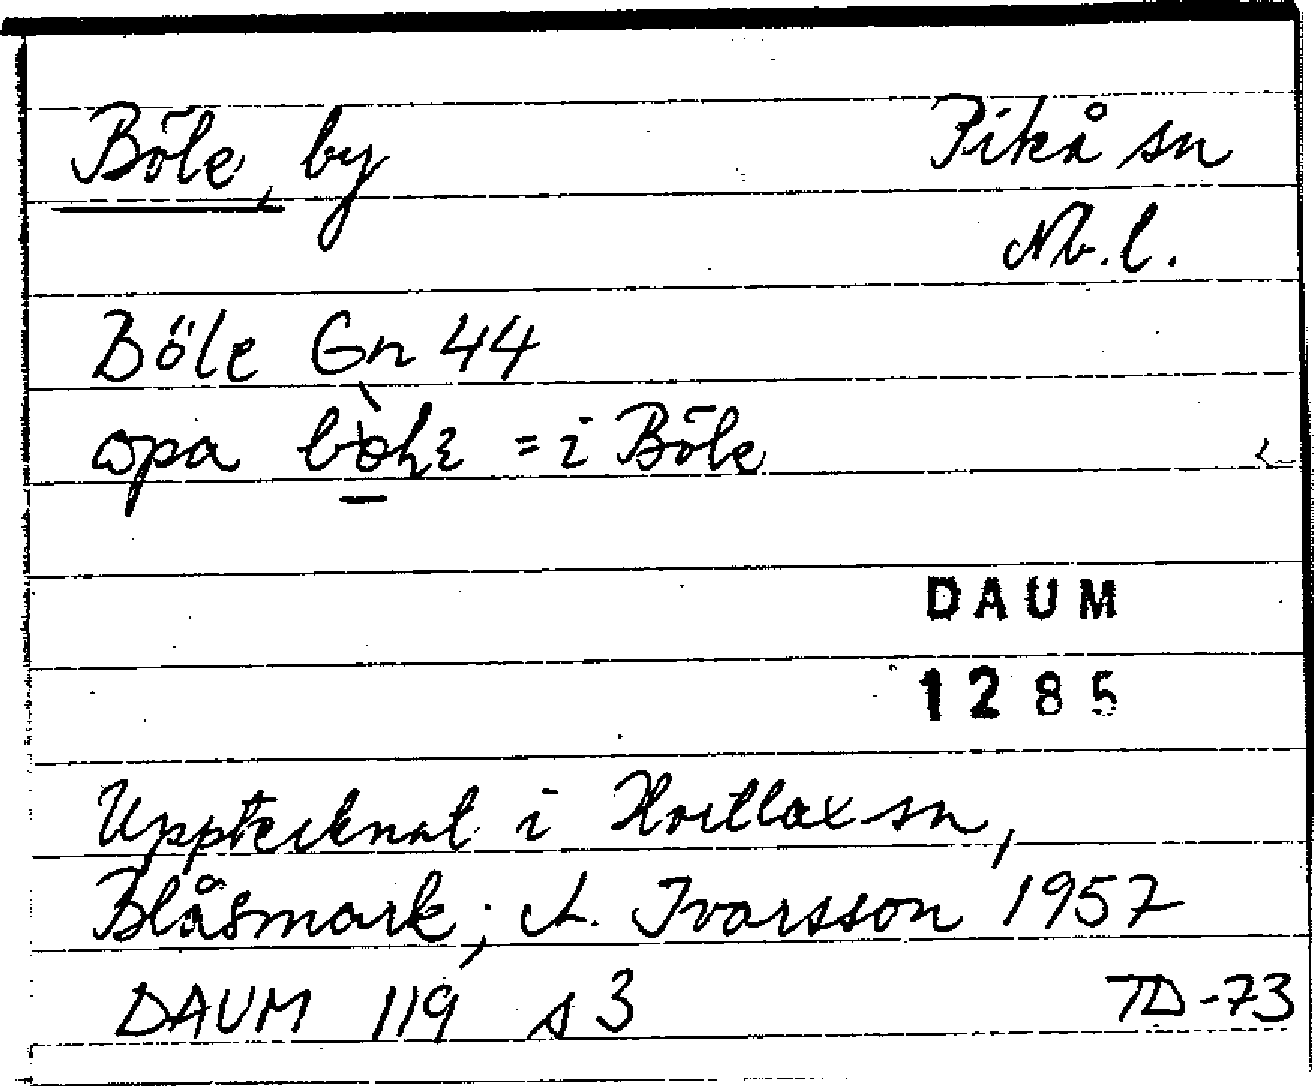 Böle, by Pikå sn
Nb.l.
Böle Gn 44
= i Böle
DAUM
1285
Upptecknat i Hortlax sn,
Blåsmark; A. Ivarsson 1957
DAUM 119 s 3 TD-73